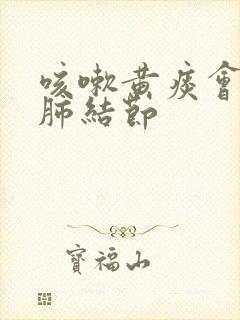 咳嗽黃痰會
肺結節
寶福山